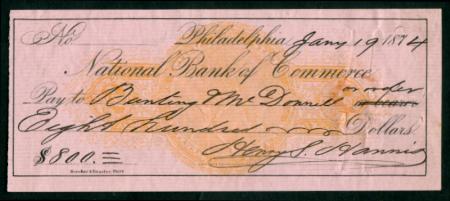 No Philadelphia, Jany 19 1874
National Bank of Commerce
Pay to Bunting & McDonnell or order
Eight hundred Dollars
$800.= Henry S. Hannis